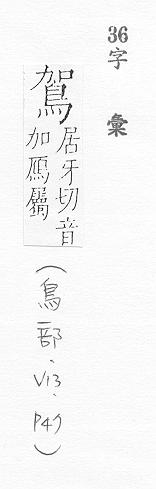 36字彙
鴐
居牙切音
加鴈屬
(鳥部、V13、P47)